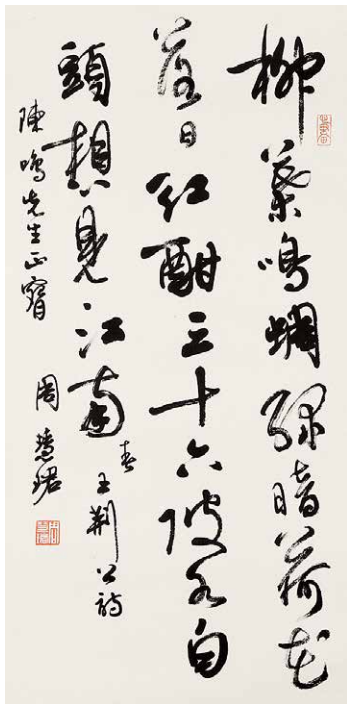 柳葉鳴蜩綠暗荷花
落日紅酣三十六陂水白
頭想見江南 春 王荊公詩
陳鳴先生正寶 周慧珺